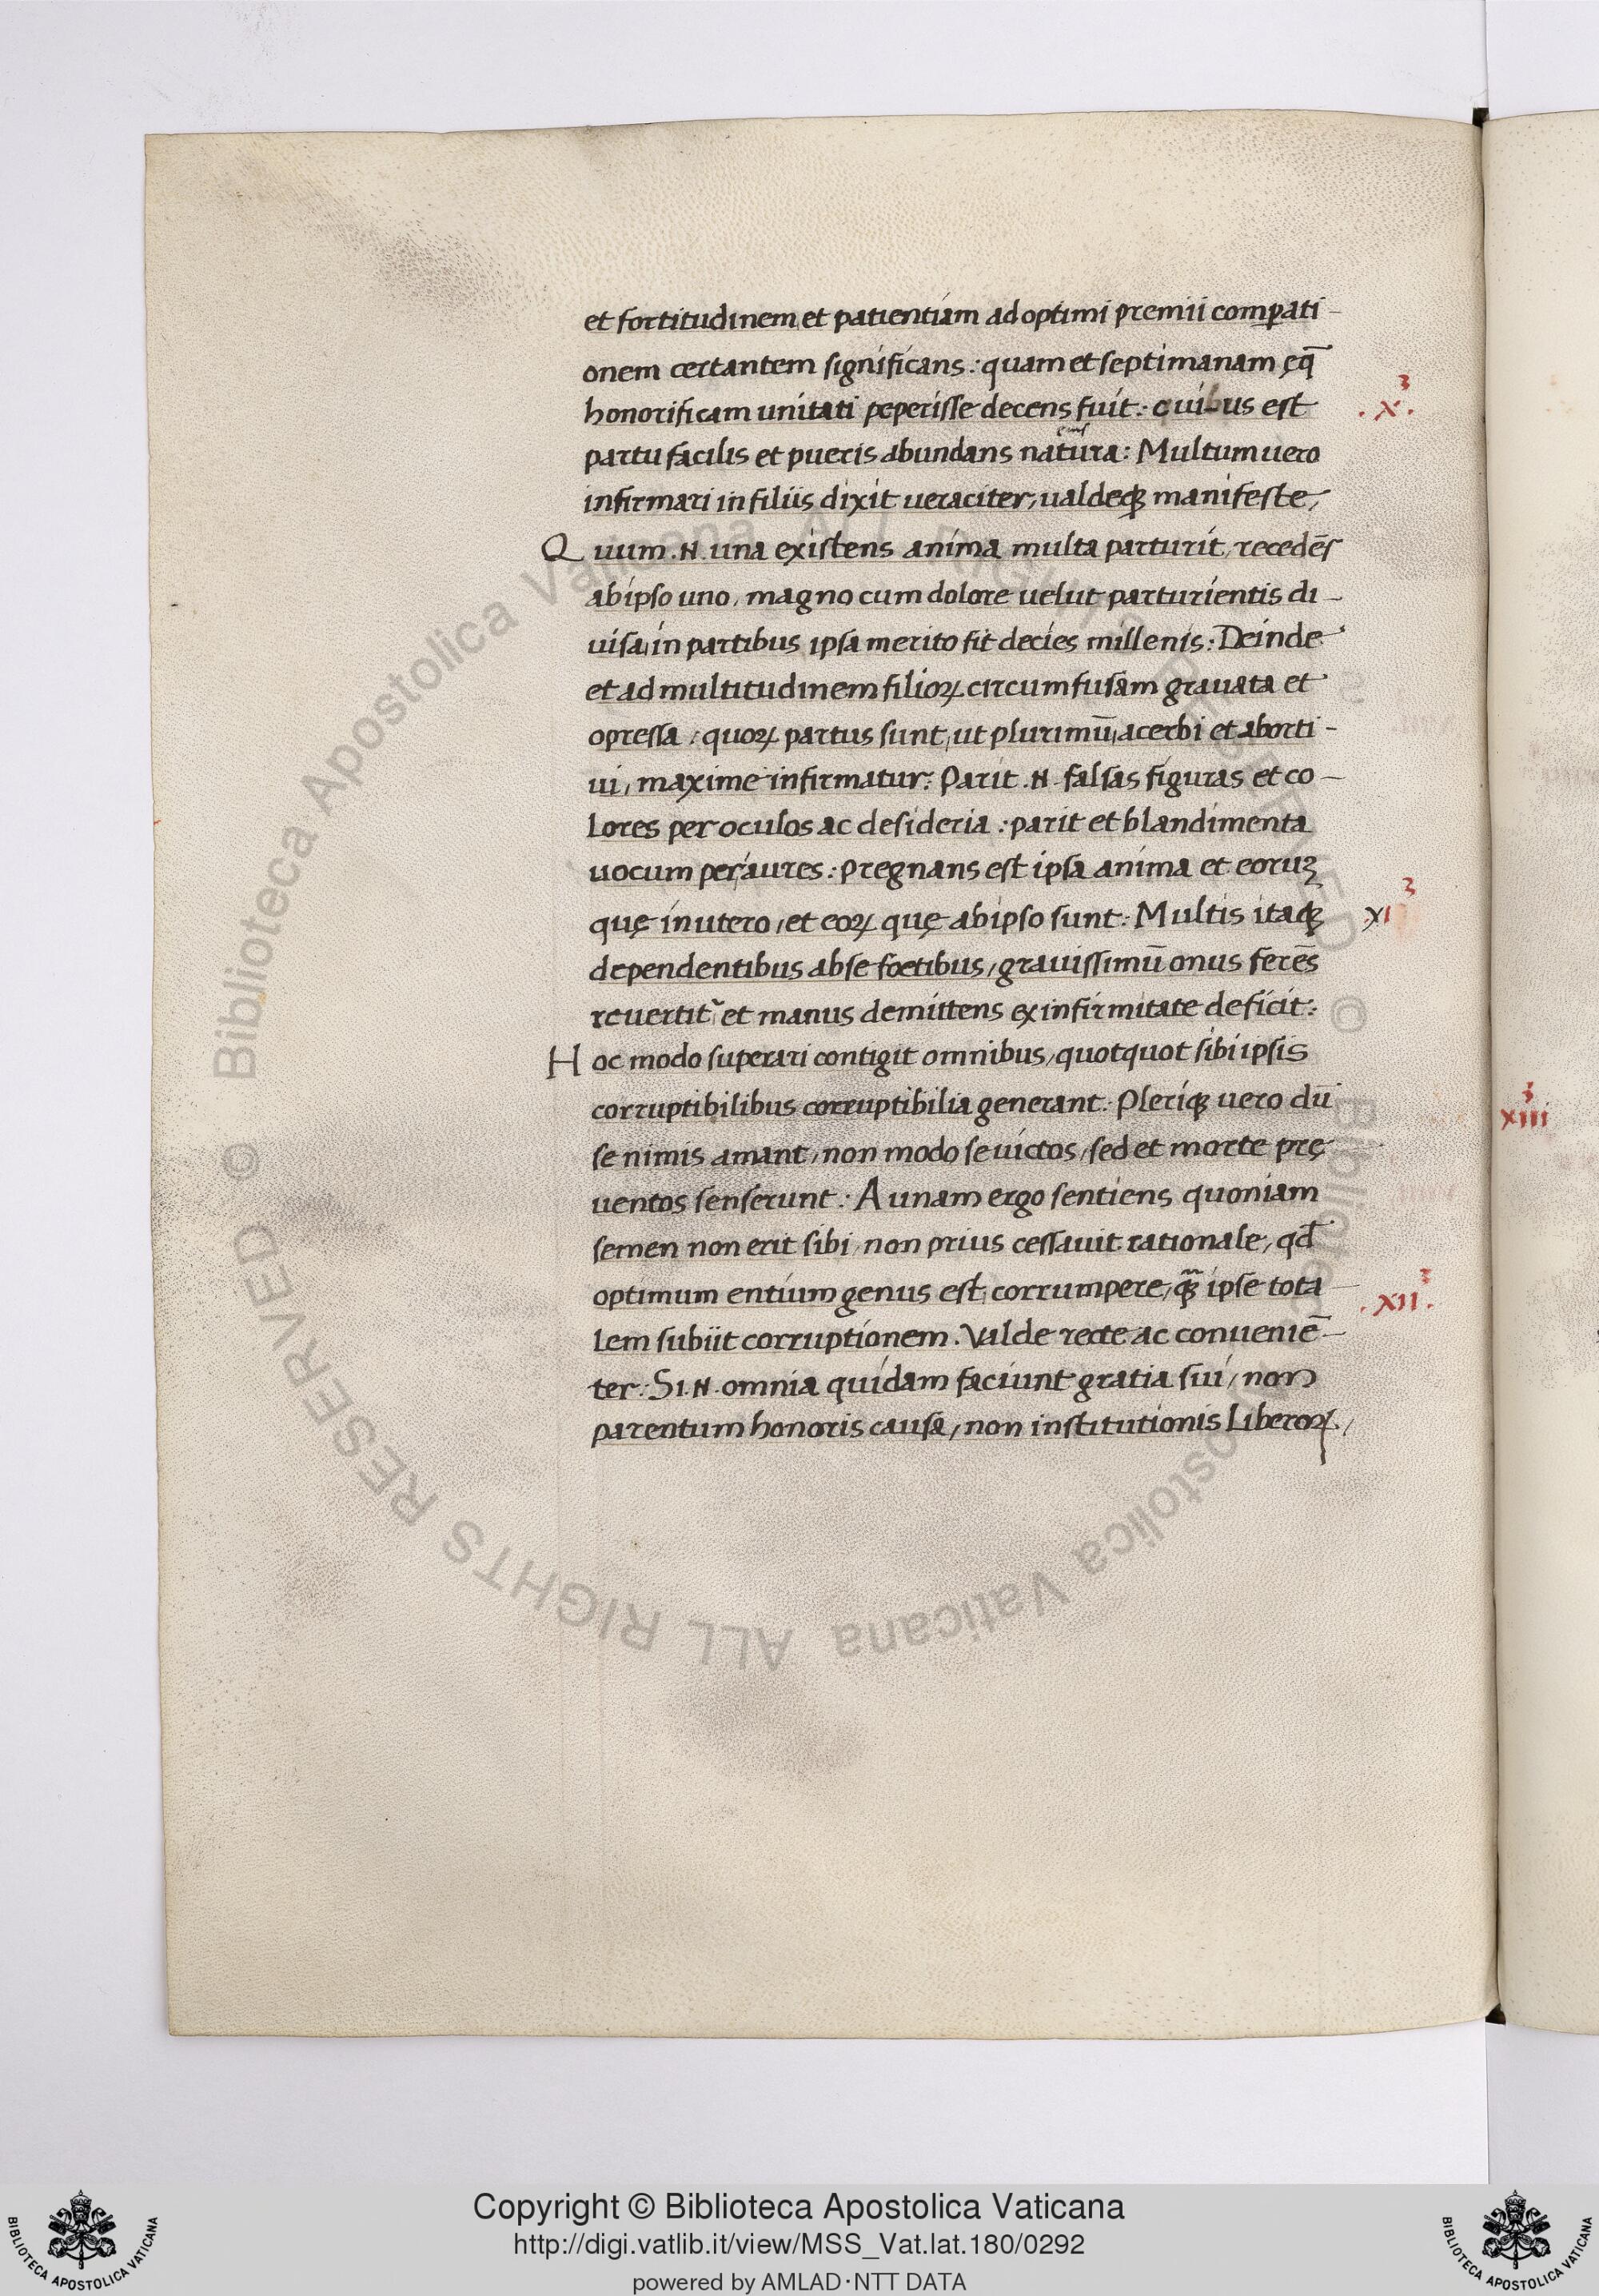 et fortitudinem et patientiam ad optimi premii comꝑati-
onem certantem significans: quam et septimanam ęq̄
honorificam unitati peperisse decens fuit: quibus est
.X.
3
eius
partu facilis et pueris abundans natura: Multum uero
infirmari in filiis dixit ueraciter, ualdeqꝫ manifeste,
Quum .N. una existens anima multa parturit, recedēs
ab ipso uno, magno cum dolore uelut parturientis di-
uisa in partibus ipsa merito fit decies millenis: Deinde
et ad multitudinem filioꝝ circumfusam grauata et
opressa, quoꝝ partus sunt, ut plurimū, acerbi et aborti-
ui, maxime infirmatur: Parit .N. falsas figuras et co-
lores per oculos ac desideria: parit et blandimenta
uocum per aures: pregnans est ipsa anima et eoruꝫ
quę in utero, et eoꝝ quę ab ipso sunt: Multis itaqꝫ
XI
3
dependentibus ab se foetibus, grauissimū onus ferēs
reuertit᷑ et manus demittens ex infirmitate deficit:
Hoc modo superari contigit omnibus, quotquot sibi ipsis
corruptibilibus corruptibilia generant: Pleriqꝫ uero dū
se nimis amant, non modo se uictos, sed et morte prę
uentos senserunt: Aunam ergo sentiens quoniam
semen non erit sibi, non prius cessauit rationale, qd̄
optimum entium genus est, corrumpere, qꝫ̄ ipse tota
.XII.
3
lem subiit corruptionem. Valde recte ac conueniē-
ter: Si .N. omnia quidam faciunt gratia sui, non
parentum honoris causa, non institutionis liberoꝝ,
3
XIII
© Biblioteca Apostolica Vaticana ALL RIGHTS RESERVED © Biblioteca Apostolica Vaticana ALL RIGHTS RESERVED
Copyright © Biblioteca Apostolica Vaticana
http://digi.vatlib.it/view/MSS_Vat.lat.180/0292
powered by AMLAD·NTT DATA
BIBLIOTECA APOSTOLICA VATICANA
BIBLIOTECA APOSTOLICA VATICANA